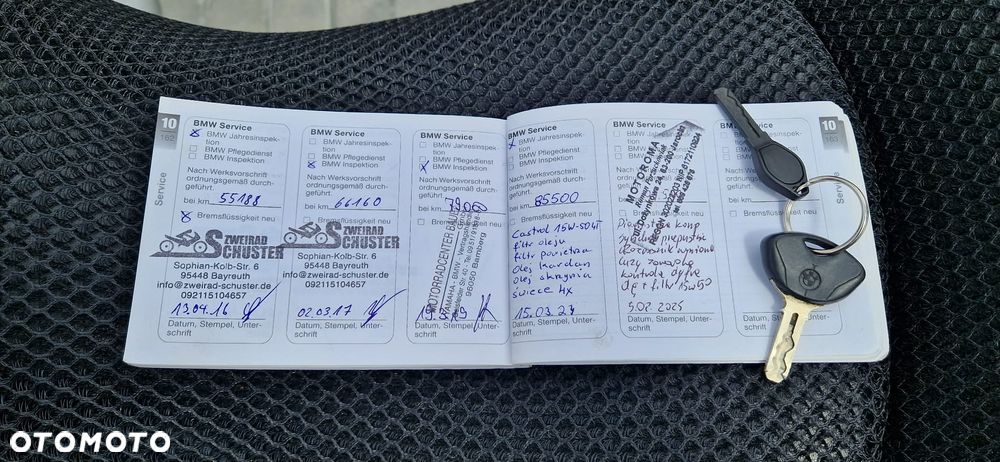 10
162
Service
BMW Service
BMW Jahresinspek-
tion
BMW Pflegedienst
BMW Inspektion
Nach Werksvorschrift
ordnungsgemäß durch-
geführt.
bei km 55188
Bremsflüssigkeit neu
ZWEIRAD
SCHUSTER
Sophian-Kolb-Str. 6
95448 Bayreuth
info@zweirad-schuster.de
092115104657
13.04.16
Datum, Stempel, Unter-
schrift
BMW Service
BMW Jahresinspek-
tion
BMW Pflegedienst
BMW Inspektion
Nach Werksvorschrift
ordnungsgemäß durch-
geführt.
bei km 66160
Bremsflüssigkeit neu
ZWEIRAD
SCHUSTER
Sophian-Kolb-Str. 6
95448 Bayreuth
info@zweirad-schuster.de
092115104657
02.03.17
Datum, Stempel, Unter-
schrift
BMW Service
BMW Jahresinspek-
tion
BMW Pflegedienst
BMW Inspektion
Nach Werksvorschrift
ordnungsgemäß durch-
geführt.
bei km
Bremsflüssigkeit neu
MOTORRADCENTER
YAMAHA - BMW - Vertragshändler
96050 Bamberg
Datum, Stempel, Unter-
schrift
BMW Service
BMW Jahresinspek-
tion
BMW Pflegedienst
BMW Inspektion
Nach Werksvorschrift
ordnungsgemäß durch-
geführt.
bei km 85500
Bremsflüssigkeit neu
Castrol 15W-50 4T
filtr oleju
filtr powietrza
olej kardan
olej skrzynia
świece 4x
Datum, Stempel, Unter-
schrift
BMW Service
BMW Jahresinspek-
tion
BMW Pflegedienst
BMW
Nach
ordnungsgemäß
geführt.
bei km
MOTOROMA
kontrola
5.02.2025
Datum, Stempel, Unter-
schrift
BMW Service
BMW
tion
BMW
BMW
Nach Werksvorschrift
geführt.
bei km
Bremsflüssigkeit
Datum, Stempel,
schrift
10
163
OTOMOTO